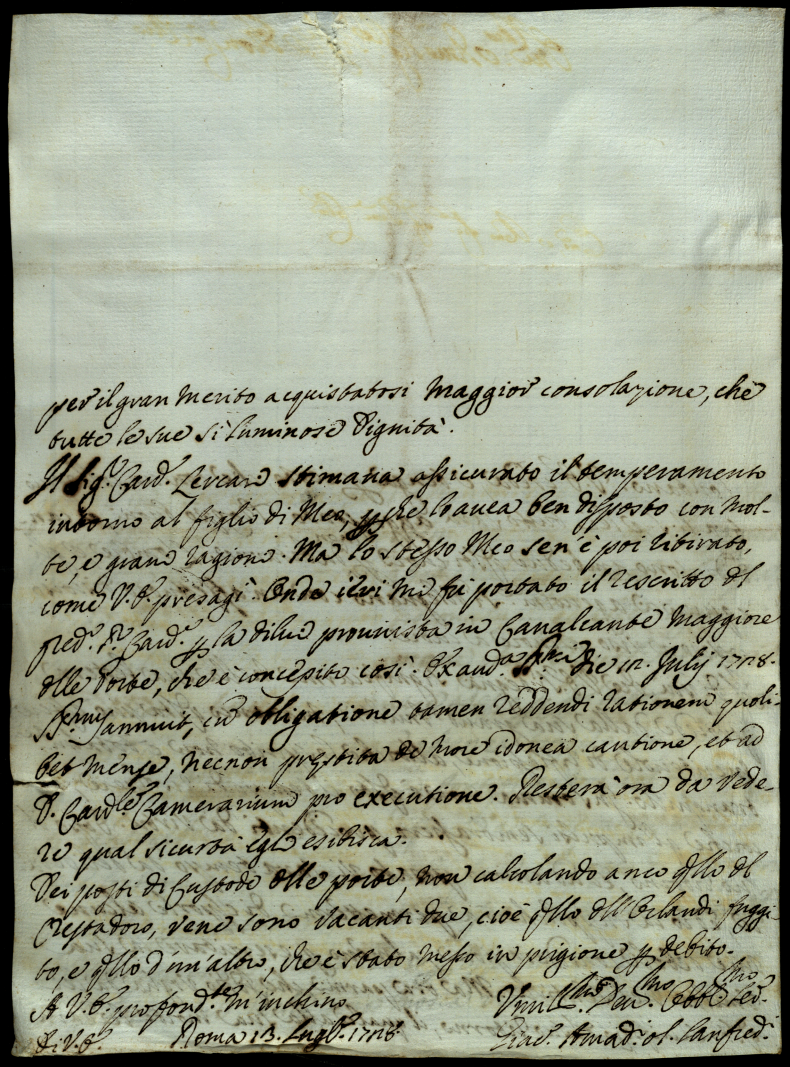 per il gran merito acquistatosi maggior consolazione, che
tutte le sue sì luminose dignità.
Il Sig.r Card.l Lercaro stimava assicurato il temperamento
intorno al figlio di Meo, p che l'avea ben disposto con mol-
te, e grave ragioni. Ma lo stesso Meo sen'è poi ritirato,
come V.E. presagì. Onde ieri me fù portato il rescritto del
pred.o Sr. Card.l p la di lui provvista in Cavalcante Maggiore
delle Porte, che è concepito così. Ex aud.a die 12. Julij 1728.
SS.mus annuit, cũ obligatione tamen reddendi rationem quoli-
bet mense, necnon prestita de more idonea cautione, et ad
D. Card.lem Camerarium pro executione. Resterà ora da vede-
re qual sicurtà egli esibisca.
Dei posti di Custode delle porte, non calcolando anco qllo del
Crestadoro, vene sono vacanti due, cioè qllo dell'Orlandi fuggi-
to, e qllo d'un'altro, che è stato messo in prigione p debito.
A V.E. profond.te m'inchino
Di V.E. Roma 13. Lugl.o 1728.
Umill.mo Dev.mo Obbl.mo Ser.
Giac. Amad. ol. Lanfred.